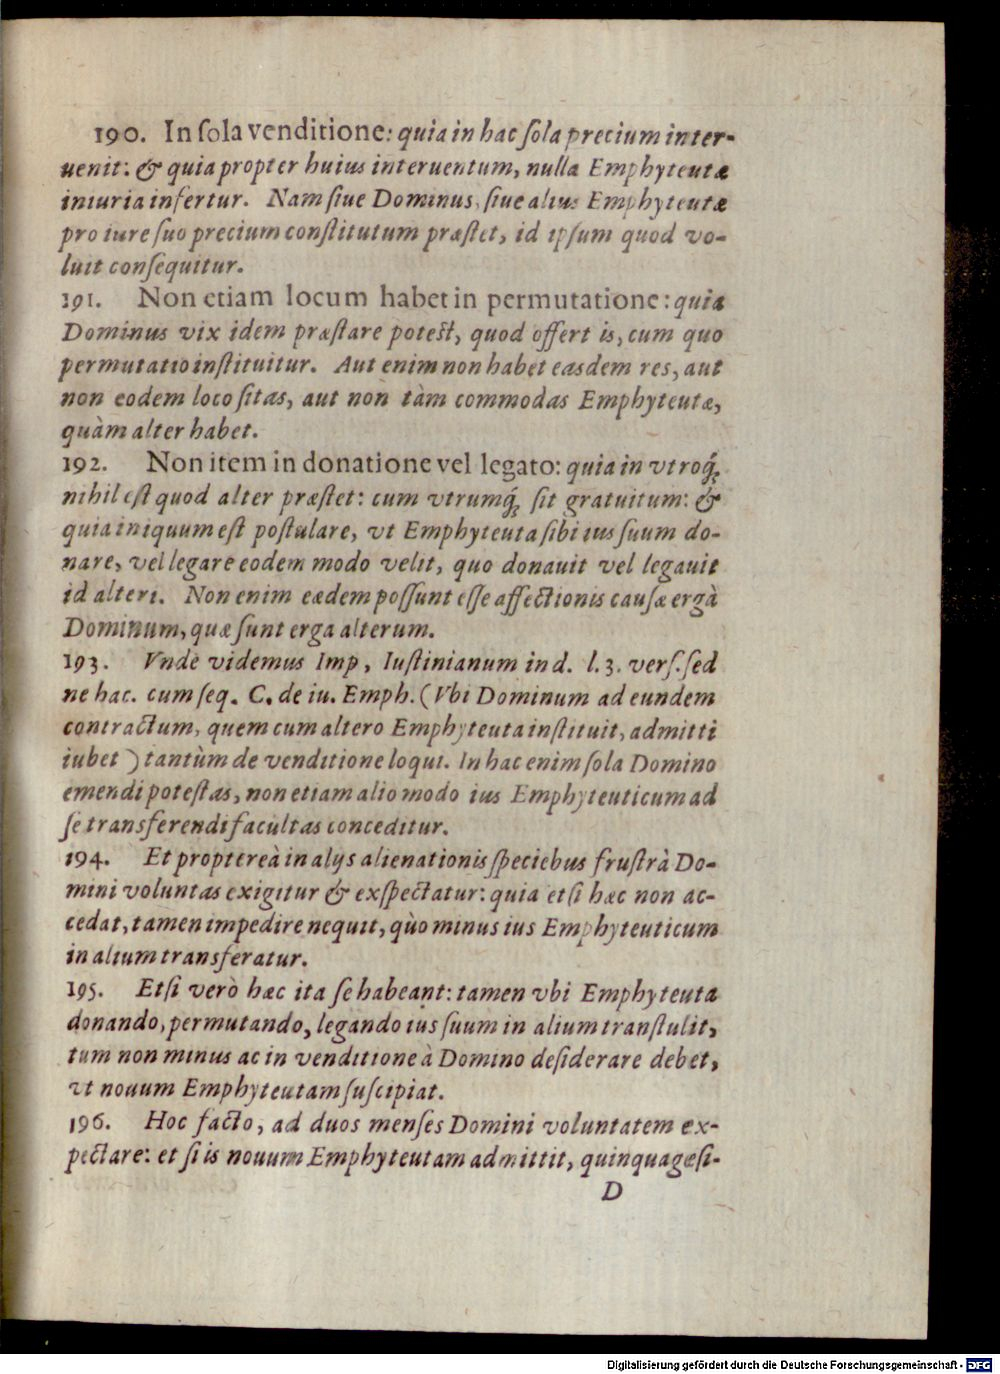 190. In ſola venditione: quia in hac ſola precium inter-
uenit: & quia propter huius interuentum, nulla Emphyteutæ
iniuria infertur. Nam ſiue Dominus, ſiue alius Emphyteutæ
pro iure ſuo precium conſtitutum præſtet, id ipſum quod vo-
luit conſequitur.
191. Non etiam locum habet in permutatione: quia
Dominus vix idem præſtare poteſt, quod offert is, cum quo
permutatio inſtituitur. Aut enim non habet easdem res, aut
non eodem loco ſitas, aut non tàm commodas Emphyteutæ,
quàm alter habet.
192. Non item in donatione vel legato: quia in vtroq́;
nihil eſt quod alter præſtet: cum vtrumq́; ſit gratuitum: &
quia iniquum eſt poſtulare, vt Emphyteuta ſibi ius ſuum do-
nare, vel legare eodem modo velit, quo donauit vel legauit
id alteri. Non enim eædem poſſunt eſſe affectionis cauſæ ergà
Dominum, quæ ſunt erga alterum.
193. Vnde videmus Imp, Iuſtinianum in d. l. 3. verſ. ſed
ne hac. cum ſeq. C. de iu. Emph. (Vbi Dominum ad eundem
contractum, quem cum altero Emphyteuta inſtituit, admitti
iubet) tantùm de venditione loqui. In hac enim ſola Domino
emendi poteſtas, non etiam alio modo ius Emphyteuticum ad
ſe transferendi facultas conceditur.
194. Et proptereà in alijs alienationis ſpeciebus fruſtrà Do-
mini voluntas exigitur & exſpectatur: quia etſi hæc non ac-
cedat, tamen impedire nequit, quò minus ius Emphyteuticum
in alium transferatur.
195. Etſi verò hæc ita ſe habeant: tamen vbi Emphyteuta
donando, permutando, legando ius ſuum in alium tranſtulit,
tum non minus ac in venditione à Domino deſiderare debet,
vt nouum Emphyteutam ſuſcipiat.
196. Hoc facto, ad duos menſes Domini voluntatem ex-
pectare: et ſi is nouum Emphyteutam admittit, quinquageſi-
D
Digitalisierung gefördert durch die Deutsche Forschungsgemeinschaft - DFG